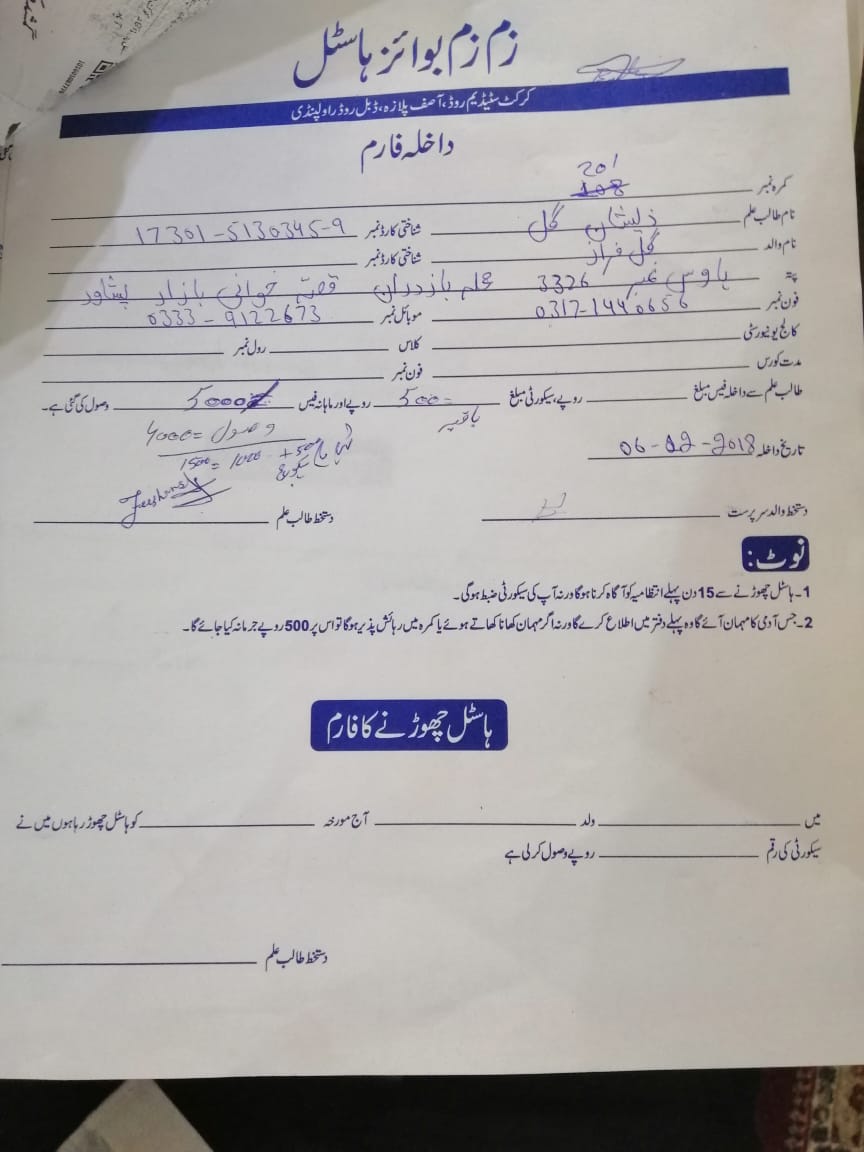 زم زم بوائز ہاسٹل
کرکٹ سٹیڈیم روڈ، آصف پلازہ، ڈبل روڈ راولپنڈی
داخلہ فارم
201
کمرہ نمبر 108
نام طالب علم ذیشان گل شناختی کارڈ نمبر 17301-5130345-9
نام والد گل فراز شناختی کارڈ نمبر
پتہ ہاوس نمبر 3326 محلہ بازدران قصہ خوانی بازار پشاور
فون نمبر 0317-1440656 موبائل نمبر 0333-9122673
کالج یونیورسٹی کلاس رول نمبر
مدت کورس فون نمبر
طالب علم سے داخلہ فیس مبلغ روپے، سیکورٹی مبلغ 500 روپے اور ماہانہ فیس 5000 وصول کی گئی ہے۔
باقیہ وصول =4000
1500 = 1000 + 500
تاریخ داخلہ 06-12-2018
دستخط والد سرپرست دستخط طالب علم
نوٹ:
1۔ ہاسٹل چھوڑنے سے 15 دن پہلے انتظامیہ کو آگاہ کرنا ہوگا ورنہ آپ کی سیکورٹی ضبط ہوگی۔
2۔ جس آدمی کا مہمان آئے گا وہ پہلے دفتر میں اطلاع کرے گا ورنہ اگر مہمان کھانا کھاتے ہوئے یا کمرہ میں رہائش پذیر ہوگا تو اس پر 500 روپے جرمانہ کیا جائے گا۔
ہاسٹل چھوڑنے کا فارم
میں ولد آج مورخہ کو ہاسٹل چھوڑ رہا ہوں میں نے
سیکورٹی کی رقم روپے وصول کر لی ہے
دستخط طالب علم